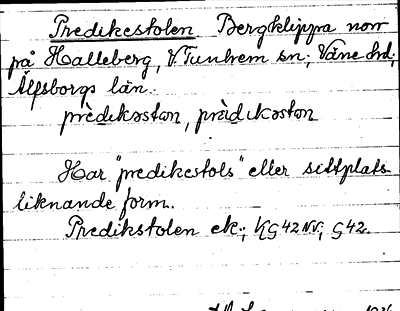 Predikestolen Bergklippa norr
på Halleberg, V. Tunhem sn; Väne hd;
Älfsborgs län.
prèdıkəstən, prèdıkəstən
Har "predikestols" eller sittplats-
liknande form.
Predikstolen ek.; KG 42 NV; G 42.